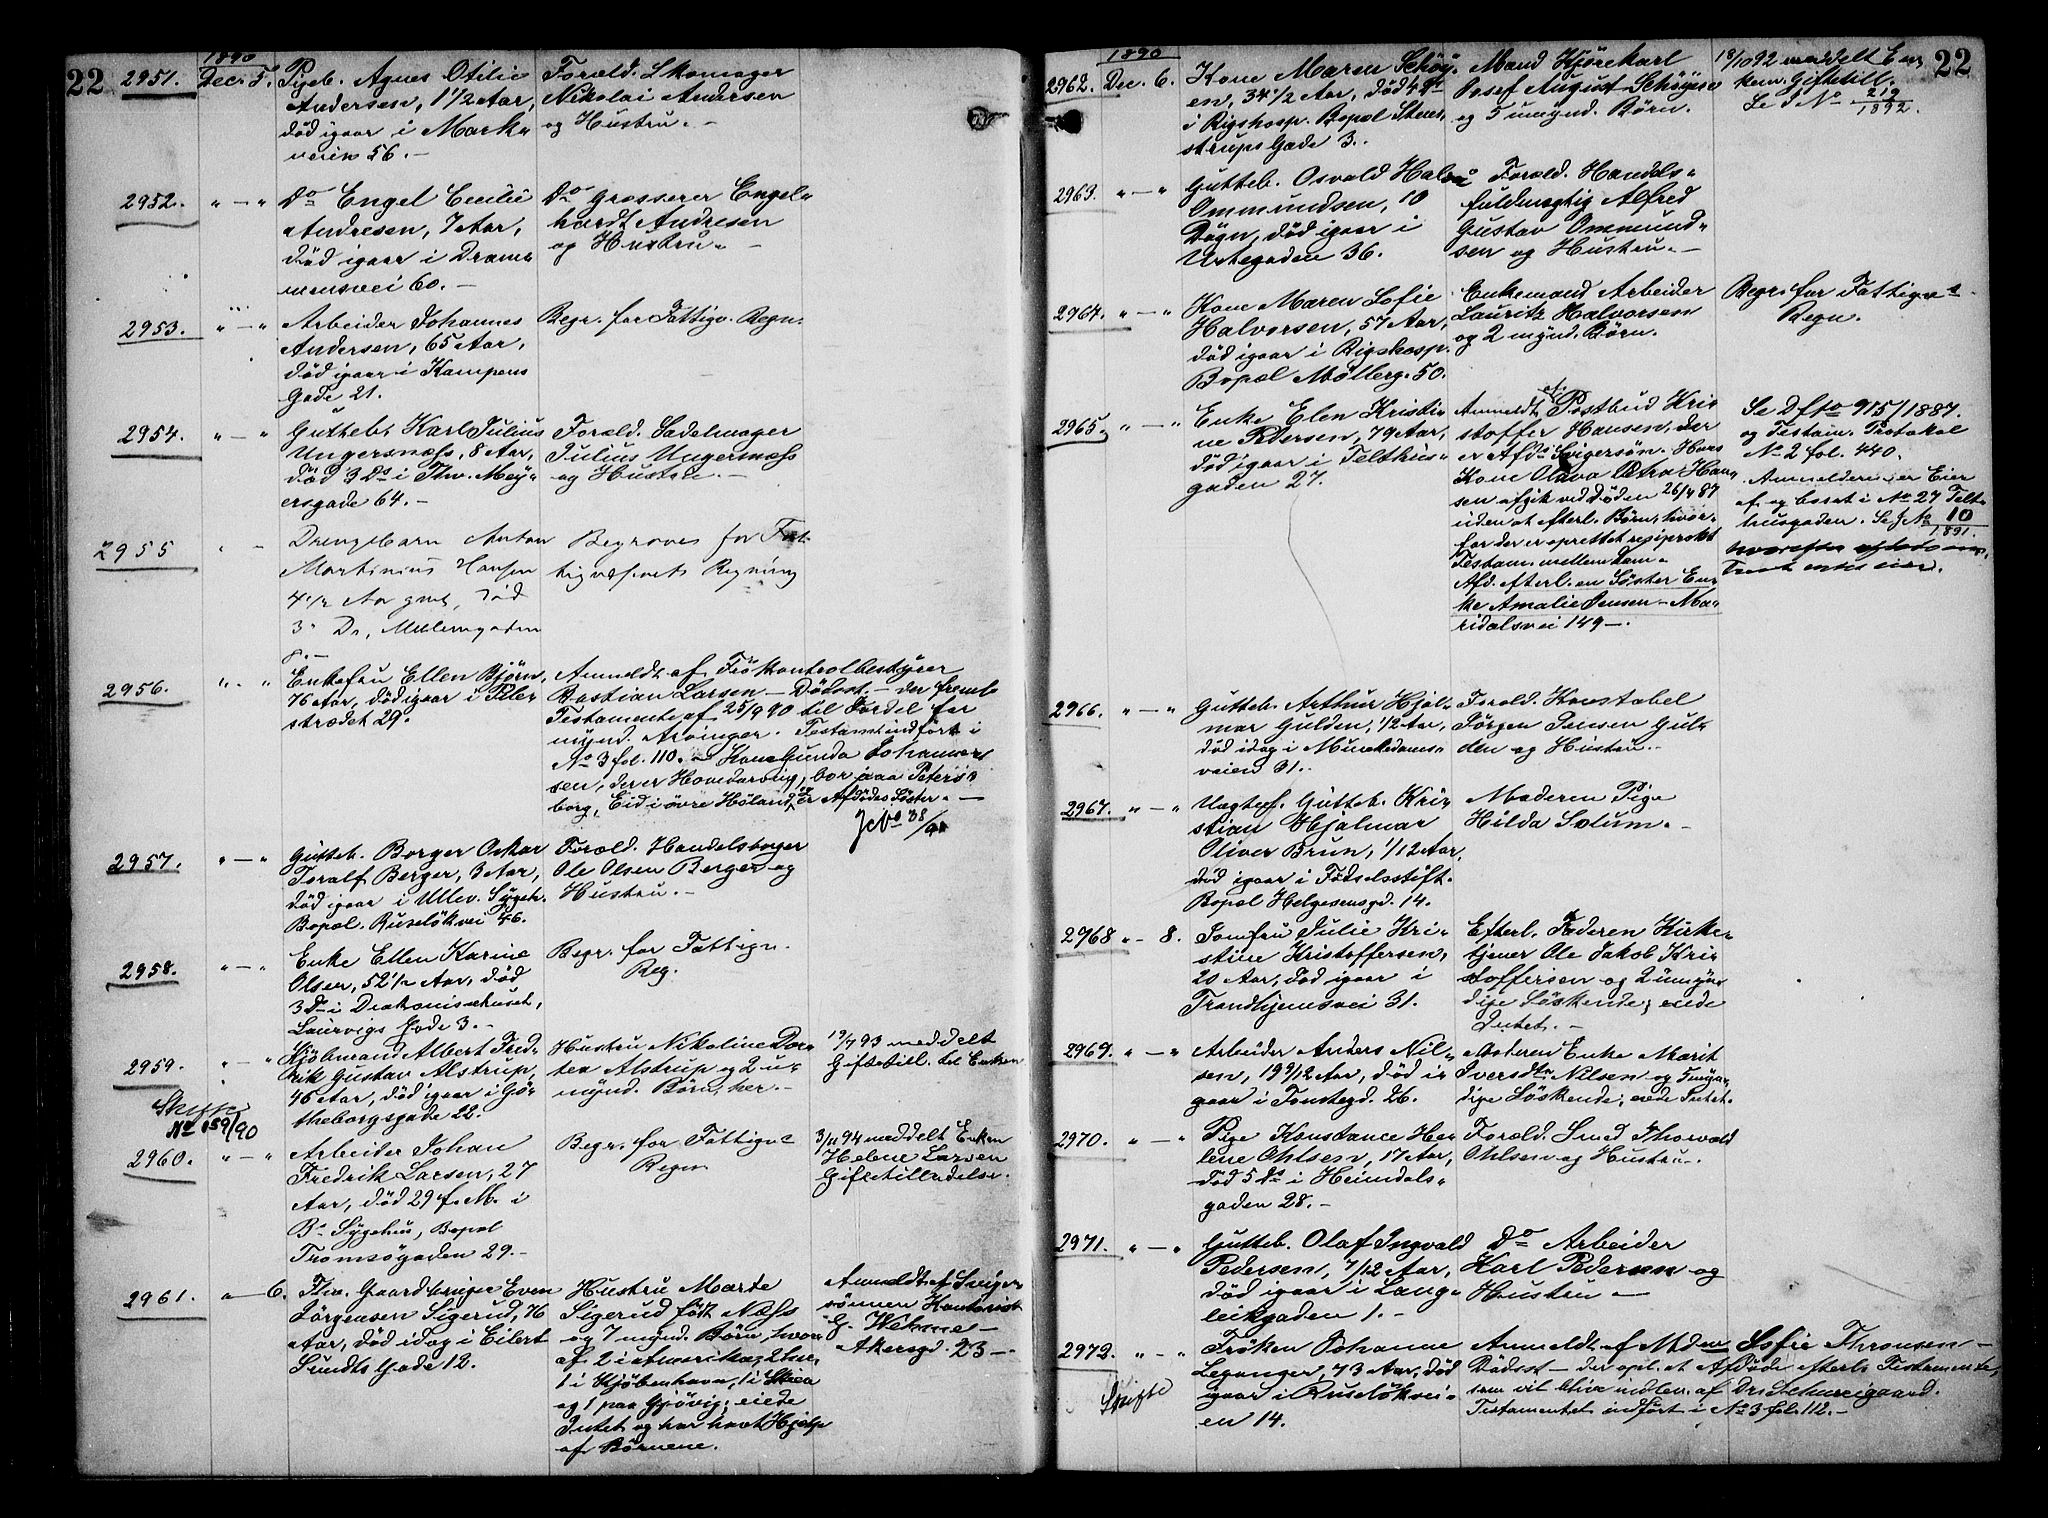 22
1890
2951. Decr. 5. Pigeb. Agnes Otilie
Andersen, 1 1/2 Aar,
død igaar i Mark-
veien 56. —
Foræld. Skomager
Nikolai Andersen
og Hustru. —
2952. " — " Do Engel Cecilie
Andresen, 7 Aar,
død igaar i Dram-
mensvei 60. —
Do Grosserer Engel-
hardt Andresen
og Hustru. —
2953. " — " Arbeider Johannes
Andersen, 65 Aar,
død igaar i Kampens
Gade 21.
Begr. for Fattigv. Regn.
2954. " — " Gutteb. Karl Julius
Ungersnæss, 8 Aar,
død 3 Ds i Thv. Mey-
ersgade 64. —
Foræld. Sadelmager
Julius Ungersnæss
og Hustru. —
2955 " — Drengebarn Anton
Martinius Hansen
4 1/2 Aar gml, død
3 Ds, Møllergaden
8. —
Begraves for Fat-
tigvæsenets Regning
2956. " — " Enkefru Ellen Bjørn,
76 Aar, død igaar i Piler-
strædet 29.
Anmeldt af Frøkontrolbestyrer
Bastian Larsen — Dødsat. — der fremla
Testamente af 25/9 90 til Fordel for
mynd. Arvinger. Testamt indført i
No 3 fol. 110. — Kone Gunda Johannes-
sen, der er Hovedarving, bor paa Peters-
borg, Eid i øvre Høland, og er Afdødes Søster. —
JNo 38/91
2957. " — " Gutteb. Borger Oskar
Toralf Berger, 3 Aar,
død igaar i Ullev. Sygeh.
Bopæl. Ruseløkvei 46.
Foræld. Handelsborger
Ole Olsen Berger og
Hustru. —
2958. " — " Enke Ellen Karine
Olsen, 52 1/2 Aar, død
3 Ds i Diakonissehuset,
Laurvigs Gade 3. —
Begr. for Fattign.
Reg.
2959. " — " Kjøbmand Albert Fred-
rik Gustav Alstrup,
45 Aar, død igaar i Gø-
theborgsgade 22.
Hustru Nikoline Doro-
thea Alstrup og 2 u-
mynd. Børn, her. —
19/7 93 meddelt
Giftetill. til Enken
Skifte
No 159/90
2960. " — " Arbeider Johan
Fredrik Larsen, 27
Aar, død 29 f. M. i
Bs Sygehus, Bopæl
Tromsøgaden 29. —
Begr. for Fattigvs
Regn
3/11 94 meddelt Enken
Helene Larsen
Giftetilladelse.
2961. " — 6. Fhv. Gaardbruger Even
Jørgensen Sigerud, 76
Aar, død idag i Eilert
Sundts Gade 12.
Hustru Marte
Sigerud født Næss
og 7 mynd. Børn, hvor-
af 2 i Amerika, 2 her,
1 i Kjøbenhavn, 1 i
og 1 paa Gjøvig; eiede
Intet og har havt Hjælp
af Børnene.
Anmeldt af Sviger-
sønnen Kontorist
G. Wehmel —
Akersgd. 23 —
1890
22
2962. Dec. 6. Kone Maren Schøy-
en, 34 1/2 Aar, død 4 Ds
i Rigshosp. Bopæl Stens-
strups Gade 3. —
Mand Kjørekarl
Josef August Schøyen
og 5 umynd. Børn.
18/10 92 meddelt En-
kem. Giftetill.
Se J No 219/1892.
2963. " — " Gutteb. Osvald
Ommundsen, 10
Døgn, død igaar i
Urtegaden 36.
Foræld. Handels-
fuldmægtig Alfred
Gustav Ommund-
sen og Hustru. —
2964. " — " Kone Maren Sofie
Halvorsen, 57 Aar,
død igaar i Rigshosp.
Bopæl Møllerg. 50.
Enkemand Arbeider
Lauritz Halvorsen
og 2 mynd. Børn.
Begr. for Fattigves
Regn.
2965. " — " Enke Elen Kristi-
ne Pedersen, 79 Aar,
død igaar i Telthus-
gaden 27.
Anmeldt af Postbud Kri-
stoffer Hansen, der
er Afds Svigersøn. Hans
Kone Olava Petra Han-
sen afgik ved Døden 26/4 87
uden at efterl. Børn, hvor-
for der er oprettet resiprokt
Testam. mellem dem —
Afd. efterl. en Søster En-
ke Amalie Jensen — Ma-
ridalsvei 149 —.
Se Dfto 915/1887.
og Testam. Protokol
No 2 fol. 440.
Anmelderen er Eier
af og bosat i No 27 Telt-
husgaden. Se J No 10/1891.
2966. " — " Gutteb. Arthur Hjal-
mar Gulden, 1/2 Aar,
død idag i Munkedams-
veien 31. —
Foræld. Konstabel
Jørgen Jensen Gul-
den og Hustru. —
2967. " — " Uægtef. Gutteb. Kri-
stian Hjalmar
Oliver Brun, 1/12 Aar,
død igaar i Fødselsstift.
Bopæl Helgesensgd. 14.
Moderen Pige
Hilda Solum. —
2968 " — 8. Jomfru Julie Kri-
stine Kristoffersen,
20 Aar, død igaar i
Trondhjemsvei 31.
Efterl. Faderen Kirke-
tjener Ole Jakob Kri-
stoffersen og 2 umyn-
dige Søskende; eiede
Intet. —
2969. " — " Arbeider Anders Nil-
sen, 19 9/12 Aar, død i-
gaar i Tomtegd. 26.
Moderen Enke Marit
Iversdtr Nilsen og 5 umyn-
dige Søskende; eiede Intet.
2970. " — " Pige Konstance He-
lene Ohlsen, 17 Aar,
død 5 Ds i Heimdals-
gaden 28. —
Foræld. Smed Thorvald
Ohlsen og Hustru. —
2971. " — " Gutteb. Olaf Ingvald
Pedersen, 7/12 Aar,
død igaar i Lang-
leikgaden 1. —
Do Arbeider
Karl Pedersen og
Hustru —
2972. " — " Frøken Johanne
Leganger, 73 Aar, død
igaar i Ruseløkvei-
en 14.
Skifte
Anmeldt af Mdme Sofie Thronsen —
Dødsat — der opl. at Afdøde efterl. Testamente,
som vil blive indlev. af Dr. Schweigaard.
Testamentet indført i No 3 fol. 112. —